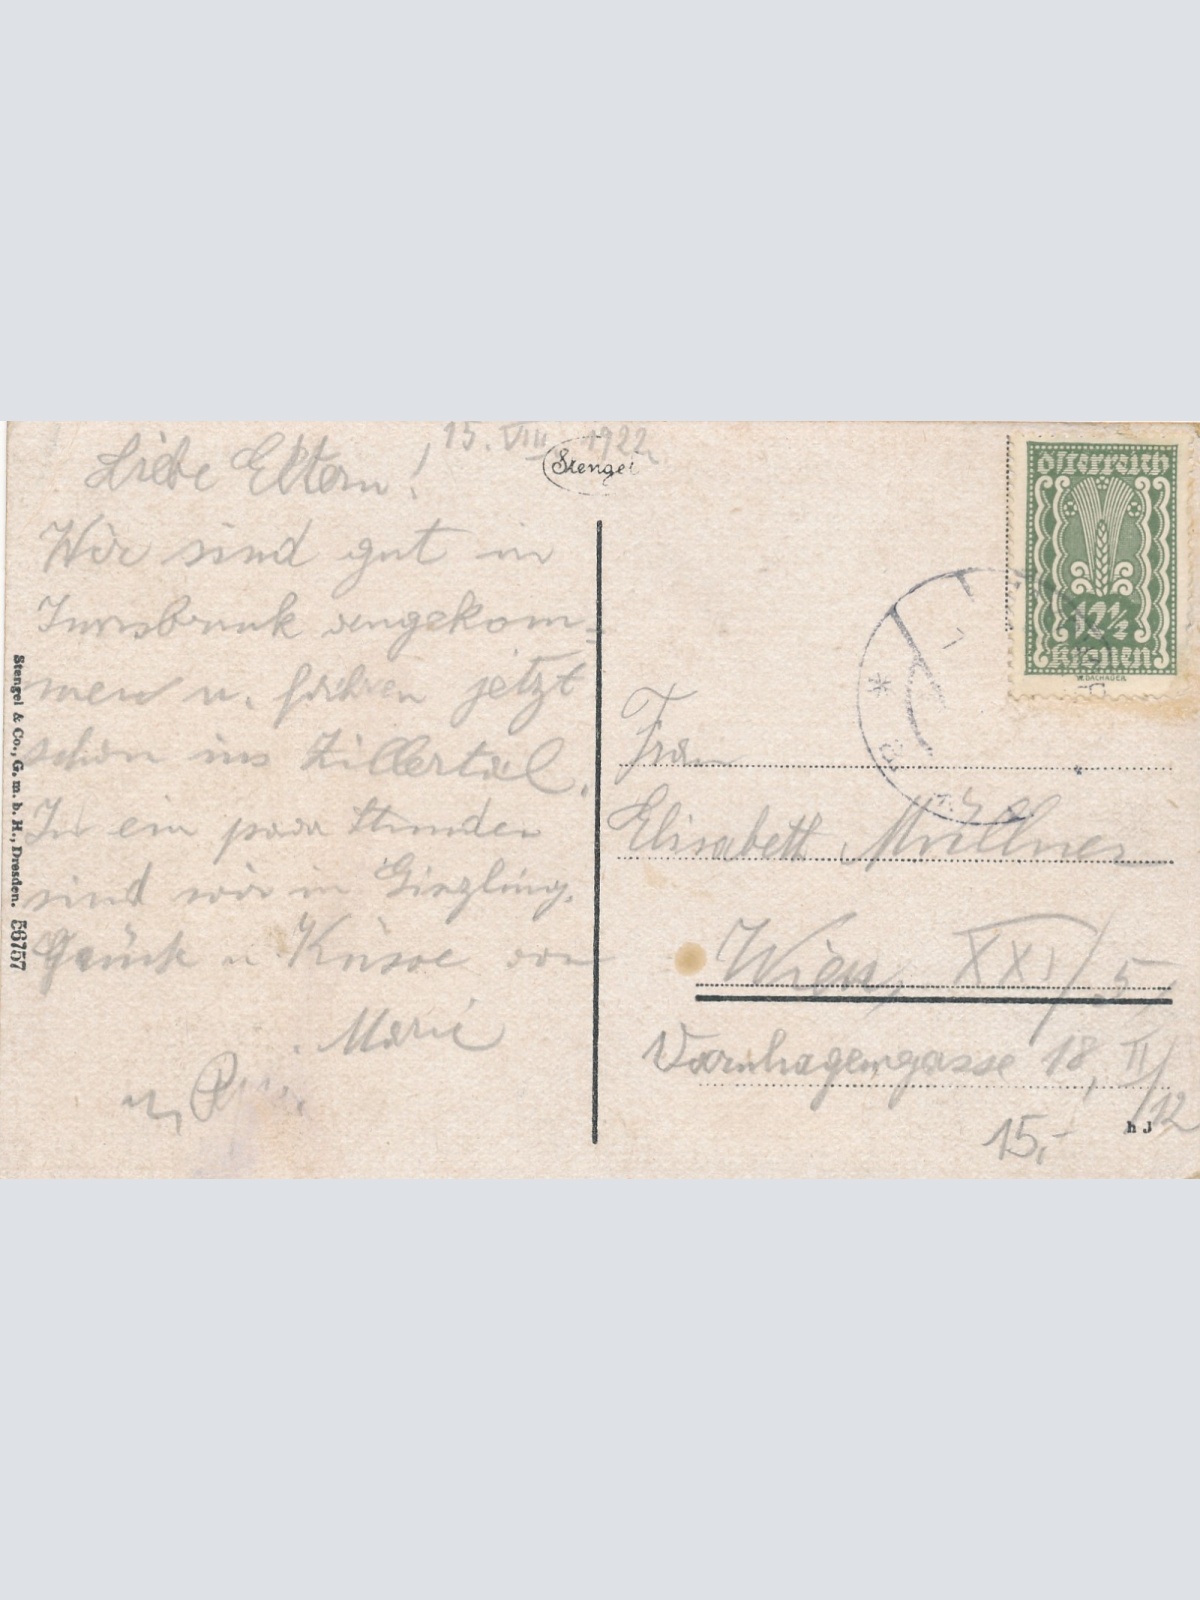 15. VIII. 1922.
Liebe Eltern!
Wir sind gut in
Innsbruck angekom=
men u. fahren jetzt
schon ins Zillertal.
In ein paar Stunden
sind wir in Ginzling.
u. Küsse von
Marie
Stengel & Co., G. m. b. H., Dresden. 56757
Stengel
österreich
12½
kronen
W. DACHAUER
Frau
Elisabeth Müllner
Wien, XXI/5,
Varnhagengasse 18, II/12
15,-
h J